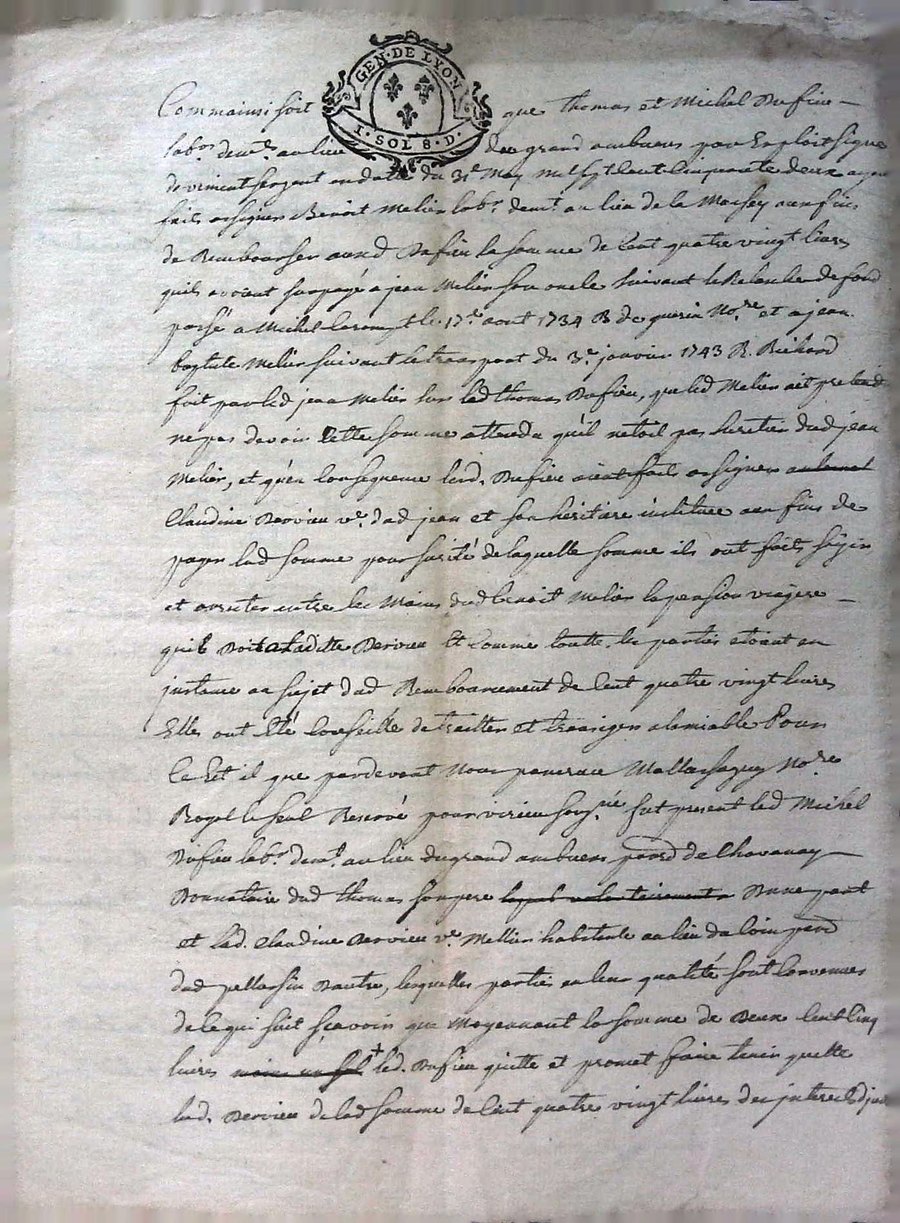 GEN·DE LYON
I·SOL 8·D·
Comme ainsi soit que thomas et Michel Dufieu
lab.r dem.t au lieu du grand ambuens par Exploit signé
de viment sergent en datte du 31e May mil sept Cent Cinquante deux ayent
faits assigner Benoit Melier lab.r dem.t au lieu de la aux fins
de Rembourser auxd Dufieu la somme de Cent quatre vingt livres
quils avoient surpayé a jean Melier son oncle suivant le de fond
passé a Michel le 17e aout 1734 R de guerin No.re et a jean
baptiste Melier suivant le transport du 3e janvier 1743 R. Richard
fait par led jean Melier led thomas Dufieu, que led Melier ait pretendu
ne pas devoir Cette somme attendu qu'il netoit pas heritier dud jean
Melier, et qu'en Consequence lesd. Dufieu aient fait assigner
Claudine Dervieu v.e dud jean et son héritiere instituée aux fins de
payer lad somme pour sureté de laquelle somme ils ont faits
et arreter entre les Mains dud benoit Melier la pension viagere
quil Doit a Laditte Dervieu Et Comme toutte les parties etoient en
instance au sujet dud Remboursement de Cent quatre vingt livres
Elles ont Eté Conseillé de traitter et transiger a lamiable Pour
Ce Est il que pardevant Nous No.re
Royal le seul Reservé pour virieu sous.né fut present led Michel
Dufieu lab.r dem.t au lieu du grand ambuens par.d de Chavanay
Donnataire dud thomas son pere volontairement Dune part
et lad. Claudine Dervieu v.e Mellier habitante au lieu du par.d
dud pellussin Dautre, lesquelles parties en leur qualité sont Convenues
de Ce qui suit sçavoir que Moyennant la somme de Deux Cent Cinq
livres moins un sol + led. Dufieu quitte et promet faire tenir quitte
lad. Dervieu de lad somme de Cent quatre vingt livres des interets